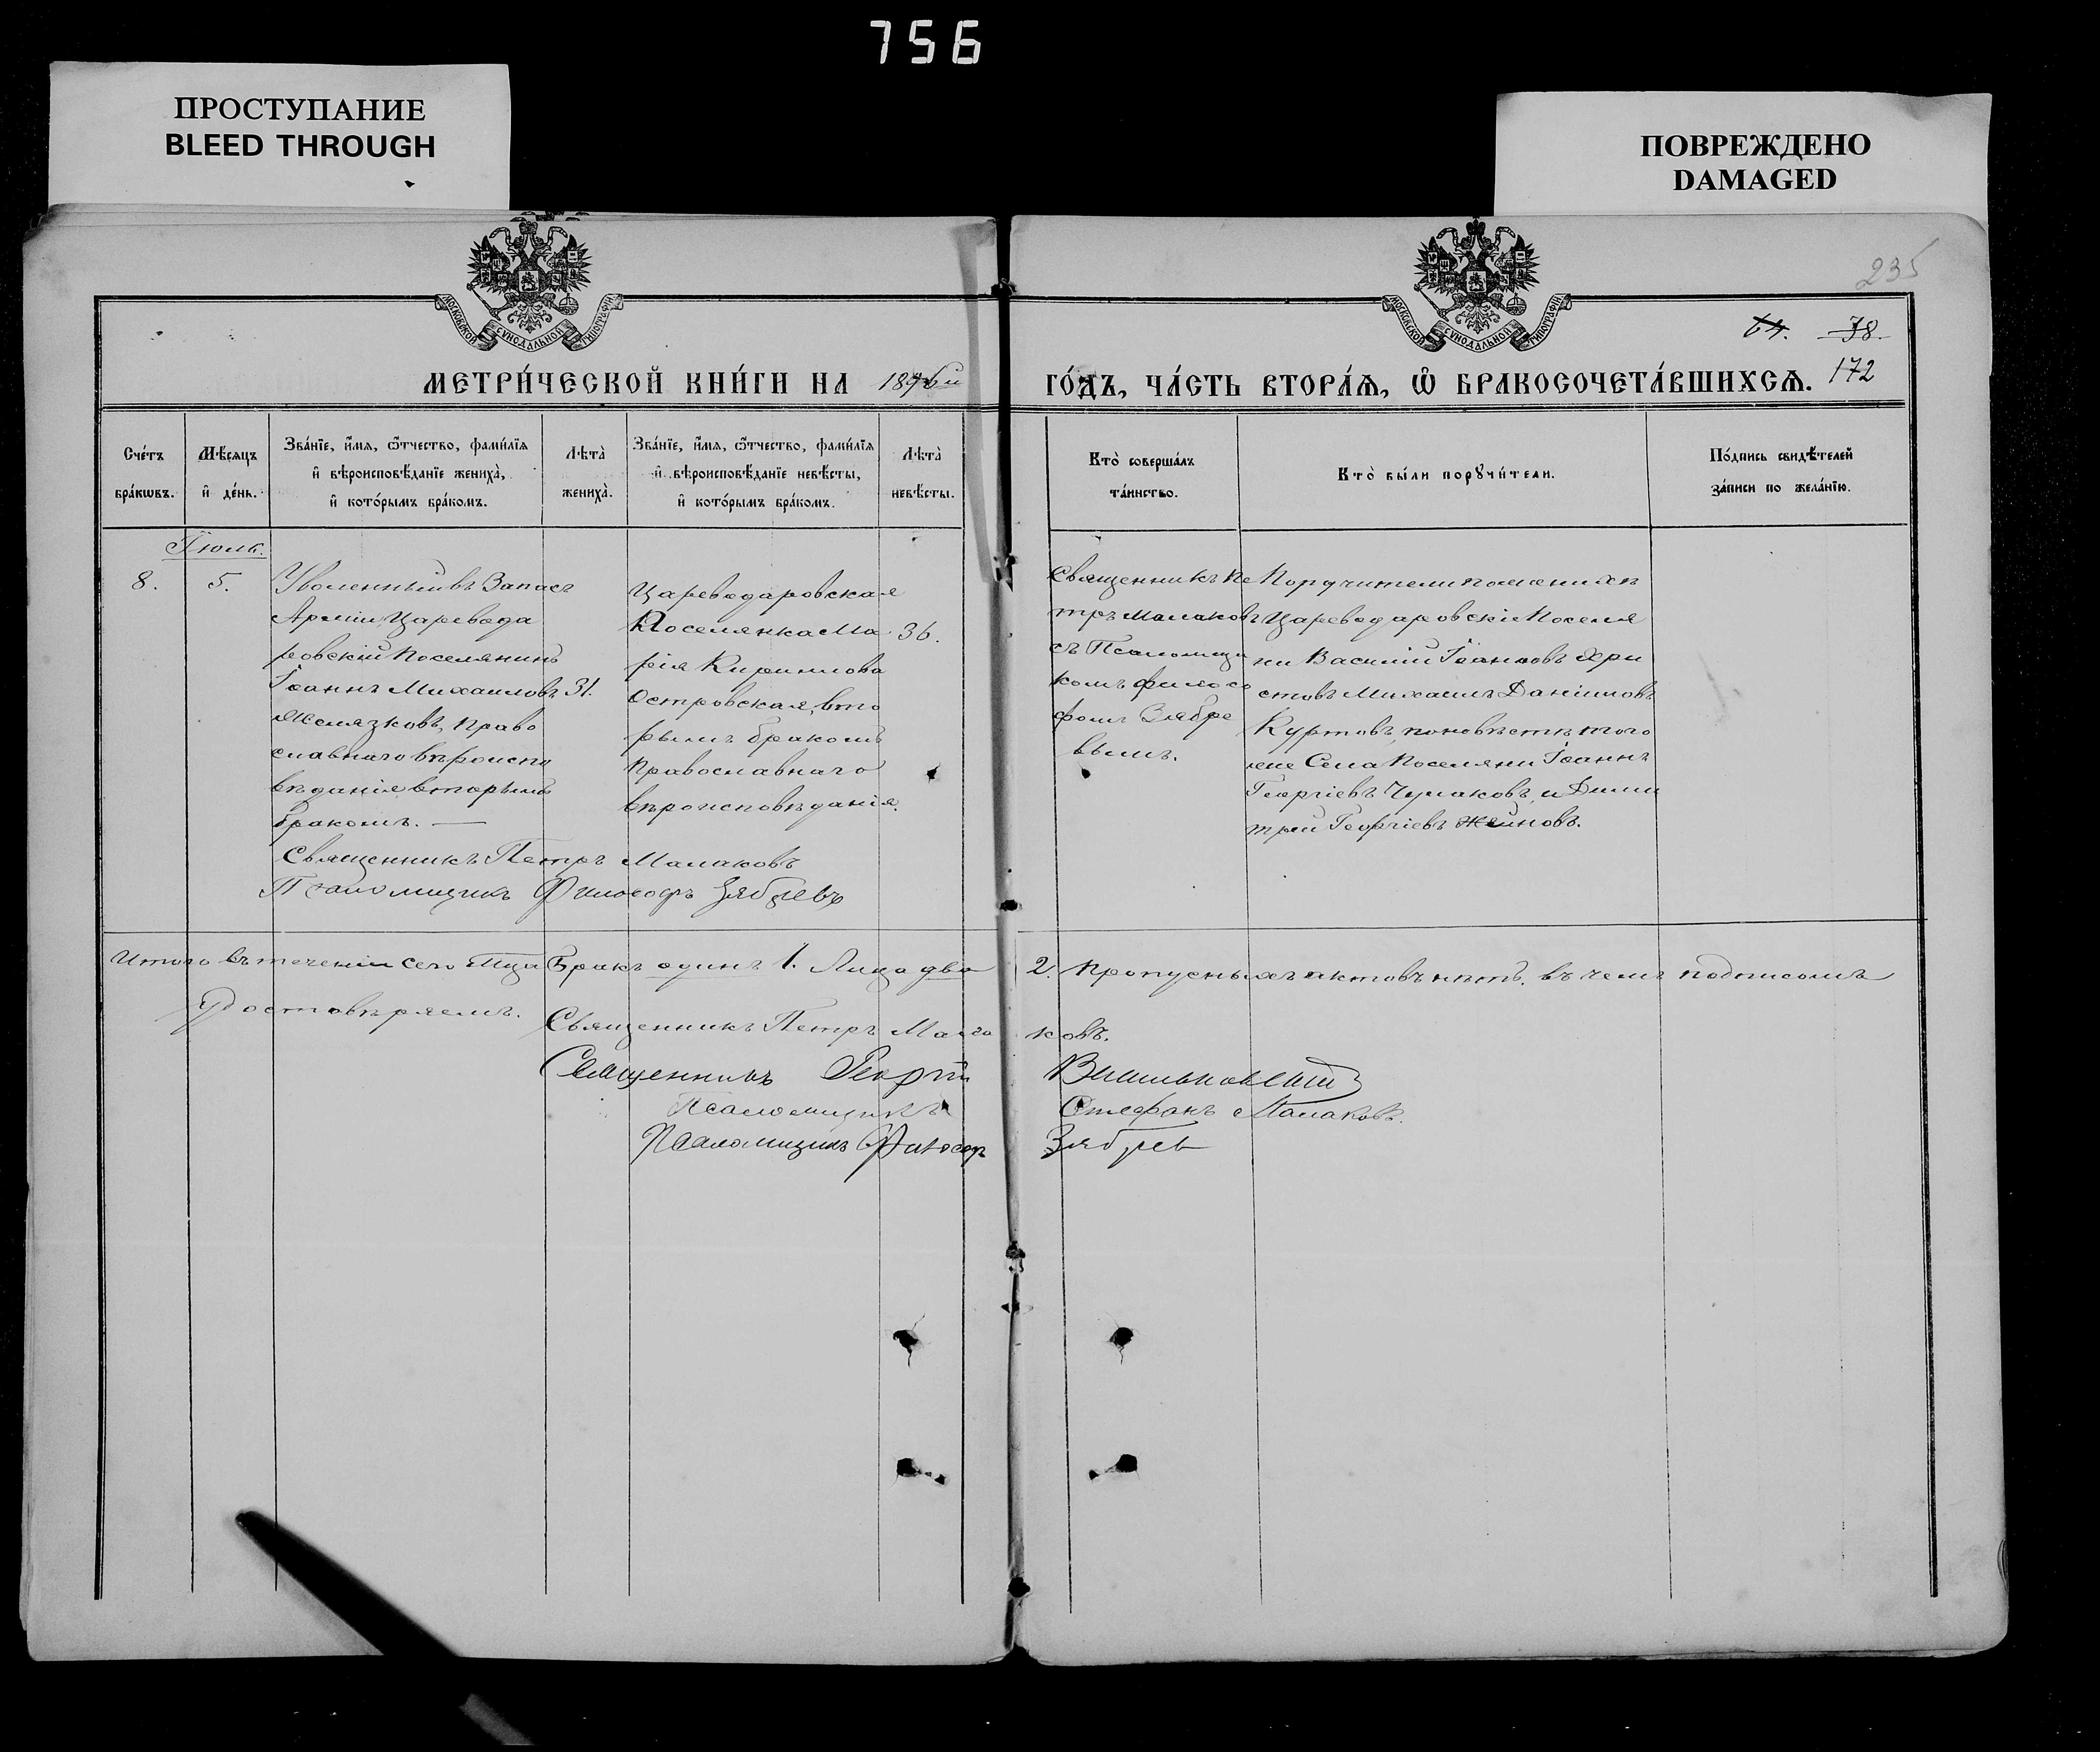 756
ПРОСТУПАНИЕ
BLEED THROUGH
ПОВРЕЖДЕНО
DAMAGED
МОСКОВСКОЙ СУНОДАЛЬНОЙ ТИПОГРАФІИ
МОСКОВСКОЙ СУНОДАЛЬНОЙ ТИПОГРАФІИ
235
78.
172
МЕТРИ́ЧЕСКОЙ КНИ́ГИ НА 1896й
ГО́ДЪ, ЧА́СТЬ ВТОРА́Ѧ, Ѽ БРАКОСОЧЕТА́ВШИХСѦ.
Сче́тъ
бра́кѡвъ.
Мѣ́сяцъ
и҆ де́нь.
Зва́нїе, и҆́мѧ, ѻ҆́тчество, фами́лїѧ
и҆ вѣроисповѣ́данїе жениха̀,
и҆ кото́рымъ бра́комъ.
Лѣта̀
жениха̀.
Зва́нїе, и҆́мѧ, ѻ҆́тчество, фами́лїѧ
и҆ вѣроисповѣ́данїе невѣ́сты,
и҆ кото́рымъ бра́комъ.
Лѣта̀
невѣ́сты.
Кто̀ соверша́лъ
та́инство.
Кто̀ бы́ли порꙋчи́тели.
По́дпись свидѣ́телей
за́писи по жела́нїю.
Іюль.
8.
5.
Уволенный въ Запасъ
Арміи, Царевода
ровскій Поселянинъ
Іоаннъ Михаиловъ
Желязковъ, Право
славнаго вѣроиспо
вѣданія вторымъ
бракомъ. —
31.
Цареводаровская
Поселянка Ма
рія Кириллова
Островская, вто
рымъ бракомъ
Православнаго
вѣроисповѣданія.
36.
Священникъ Пе
тръ Малаковъ
съ Псаломщи
комъ Филосо
фомъ Зябре
вымъ.
Поручители по женихѣ
Цареводаровскіе Поселя
не Василій Іоанновъ Хри
стовъ Михаилъ Даніиловъ
Куртовъ, по невѣстѣ того
же Села Поселяни Іоаннъ
Георгіевъ Чумаковъ, и Дими
трій Георгіевъ Жейновъ.
Священникъ Петръ Малаковъ
Псаломщикъ Философъ Зябревъ
Итого въ теченіи сего Мца Бракъ одинъ 1. Лица два 2. Пропусныхъ актовъ нѣтъ. въ чемъ подписомъ
удостовѣряемъ.
Священникъ Петръ Малаковъ.
Священникъ Георгій
Псаломщикъ Стефанъ Малаковъ.
Псаломщикъ Философ Зябрев